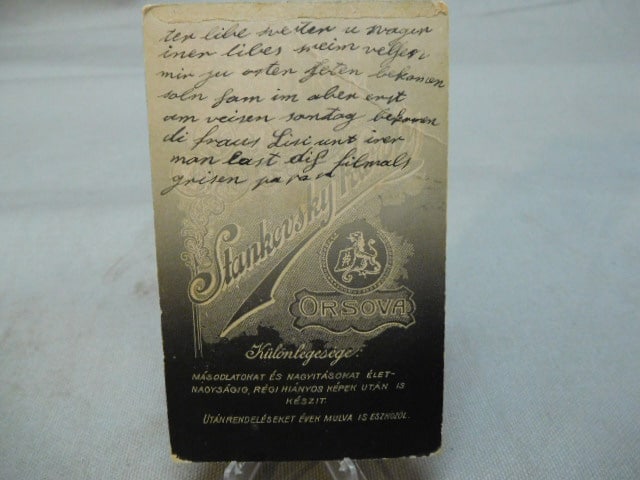 ter libe swester u swager
iner libes
mir zu oster feten bekomen
soln ham im aber erst
am veisen sondag bekomen
di fraus Lisi unt irer
man Last dig filmals
grisen
Stankovsky
ORSOVA
Különlegesége:
MÁSODLATOKAT ÉS NAGYITÁSOKAT ÉLET-
NAGYSÁGIG, RÉGI HIÁNYOS KÉPEK UTÁN IS
KÉSZIT.
UTÁNRENDELÉSEKET ÉVEK MULVA IS ESZKÖZÖL.